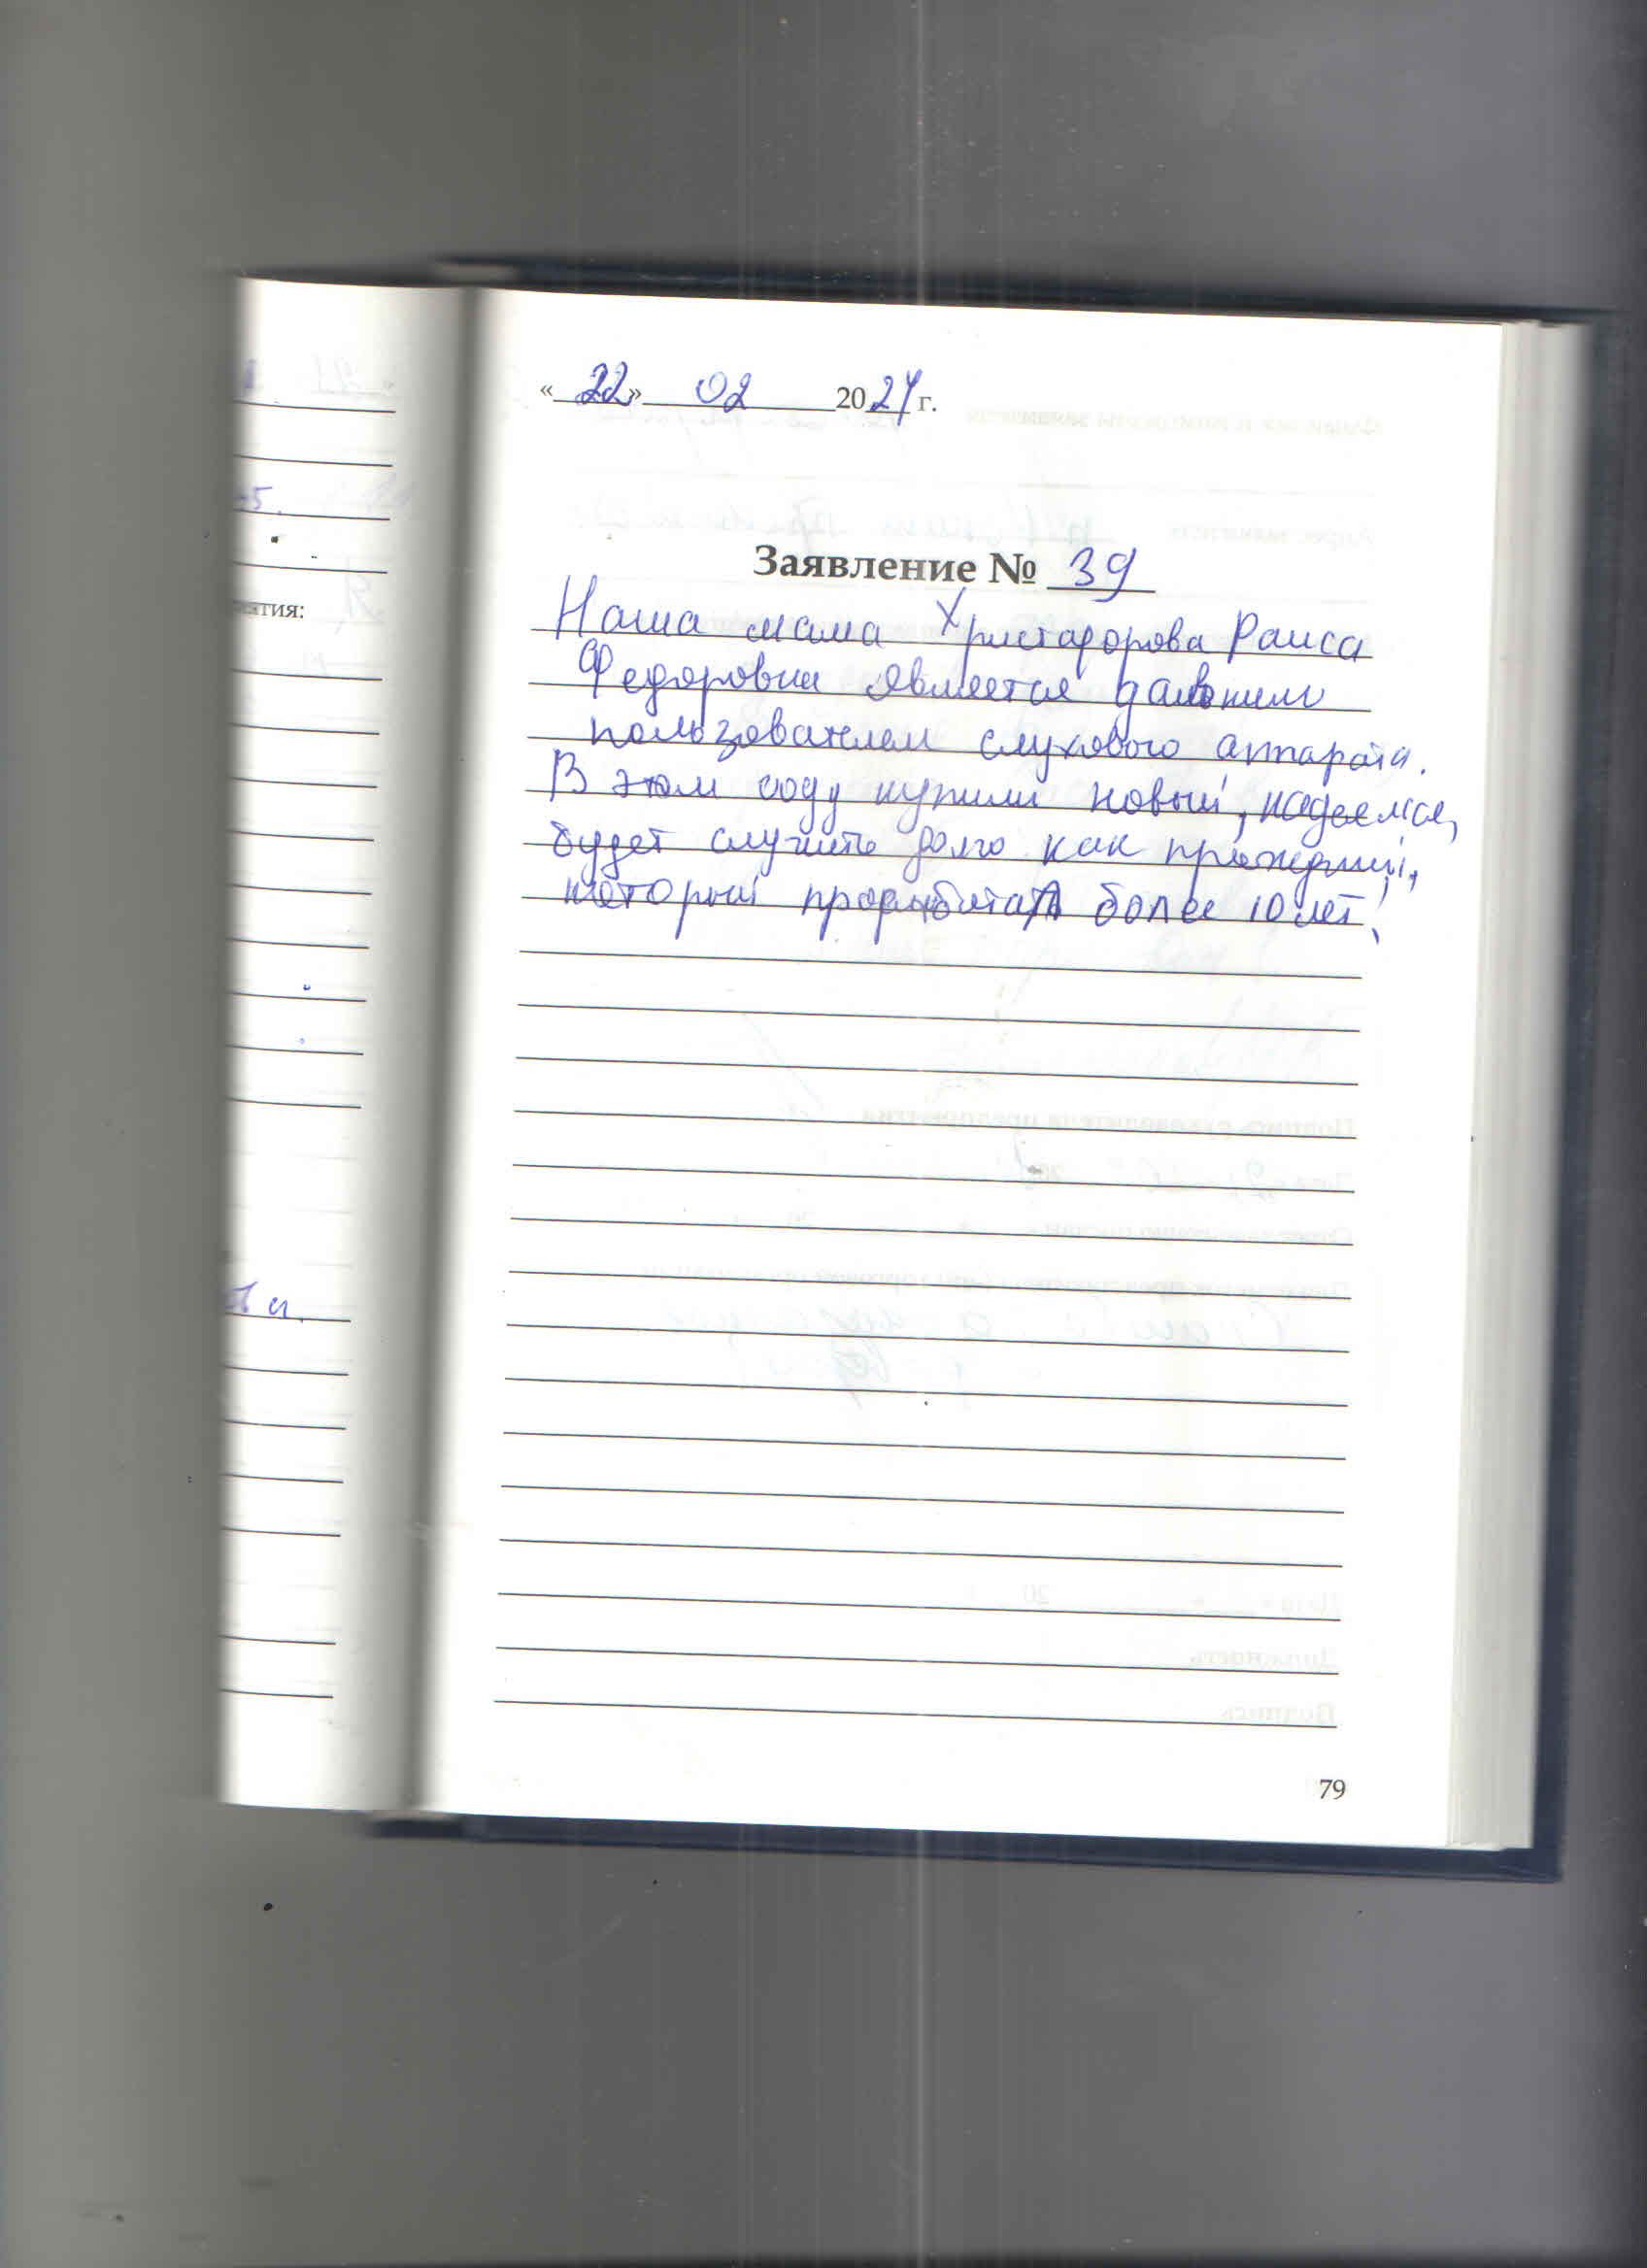 «22» 02 2024 г.
Заявление № 39
Наша мама Христафорова Раиса
Федоровна является давним
пользователем слухового аппарата.
В этом году купили новый, надеемся,
будет служить долго как прежний,
который проработал более 10 лет.
79
-5.
ятия: